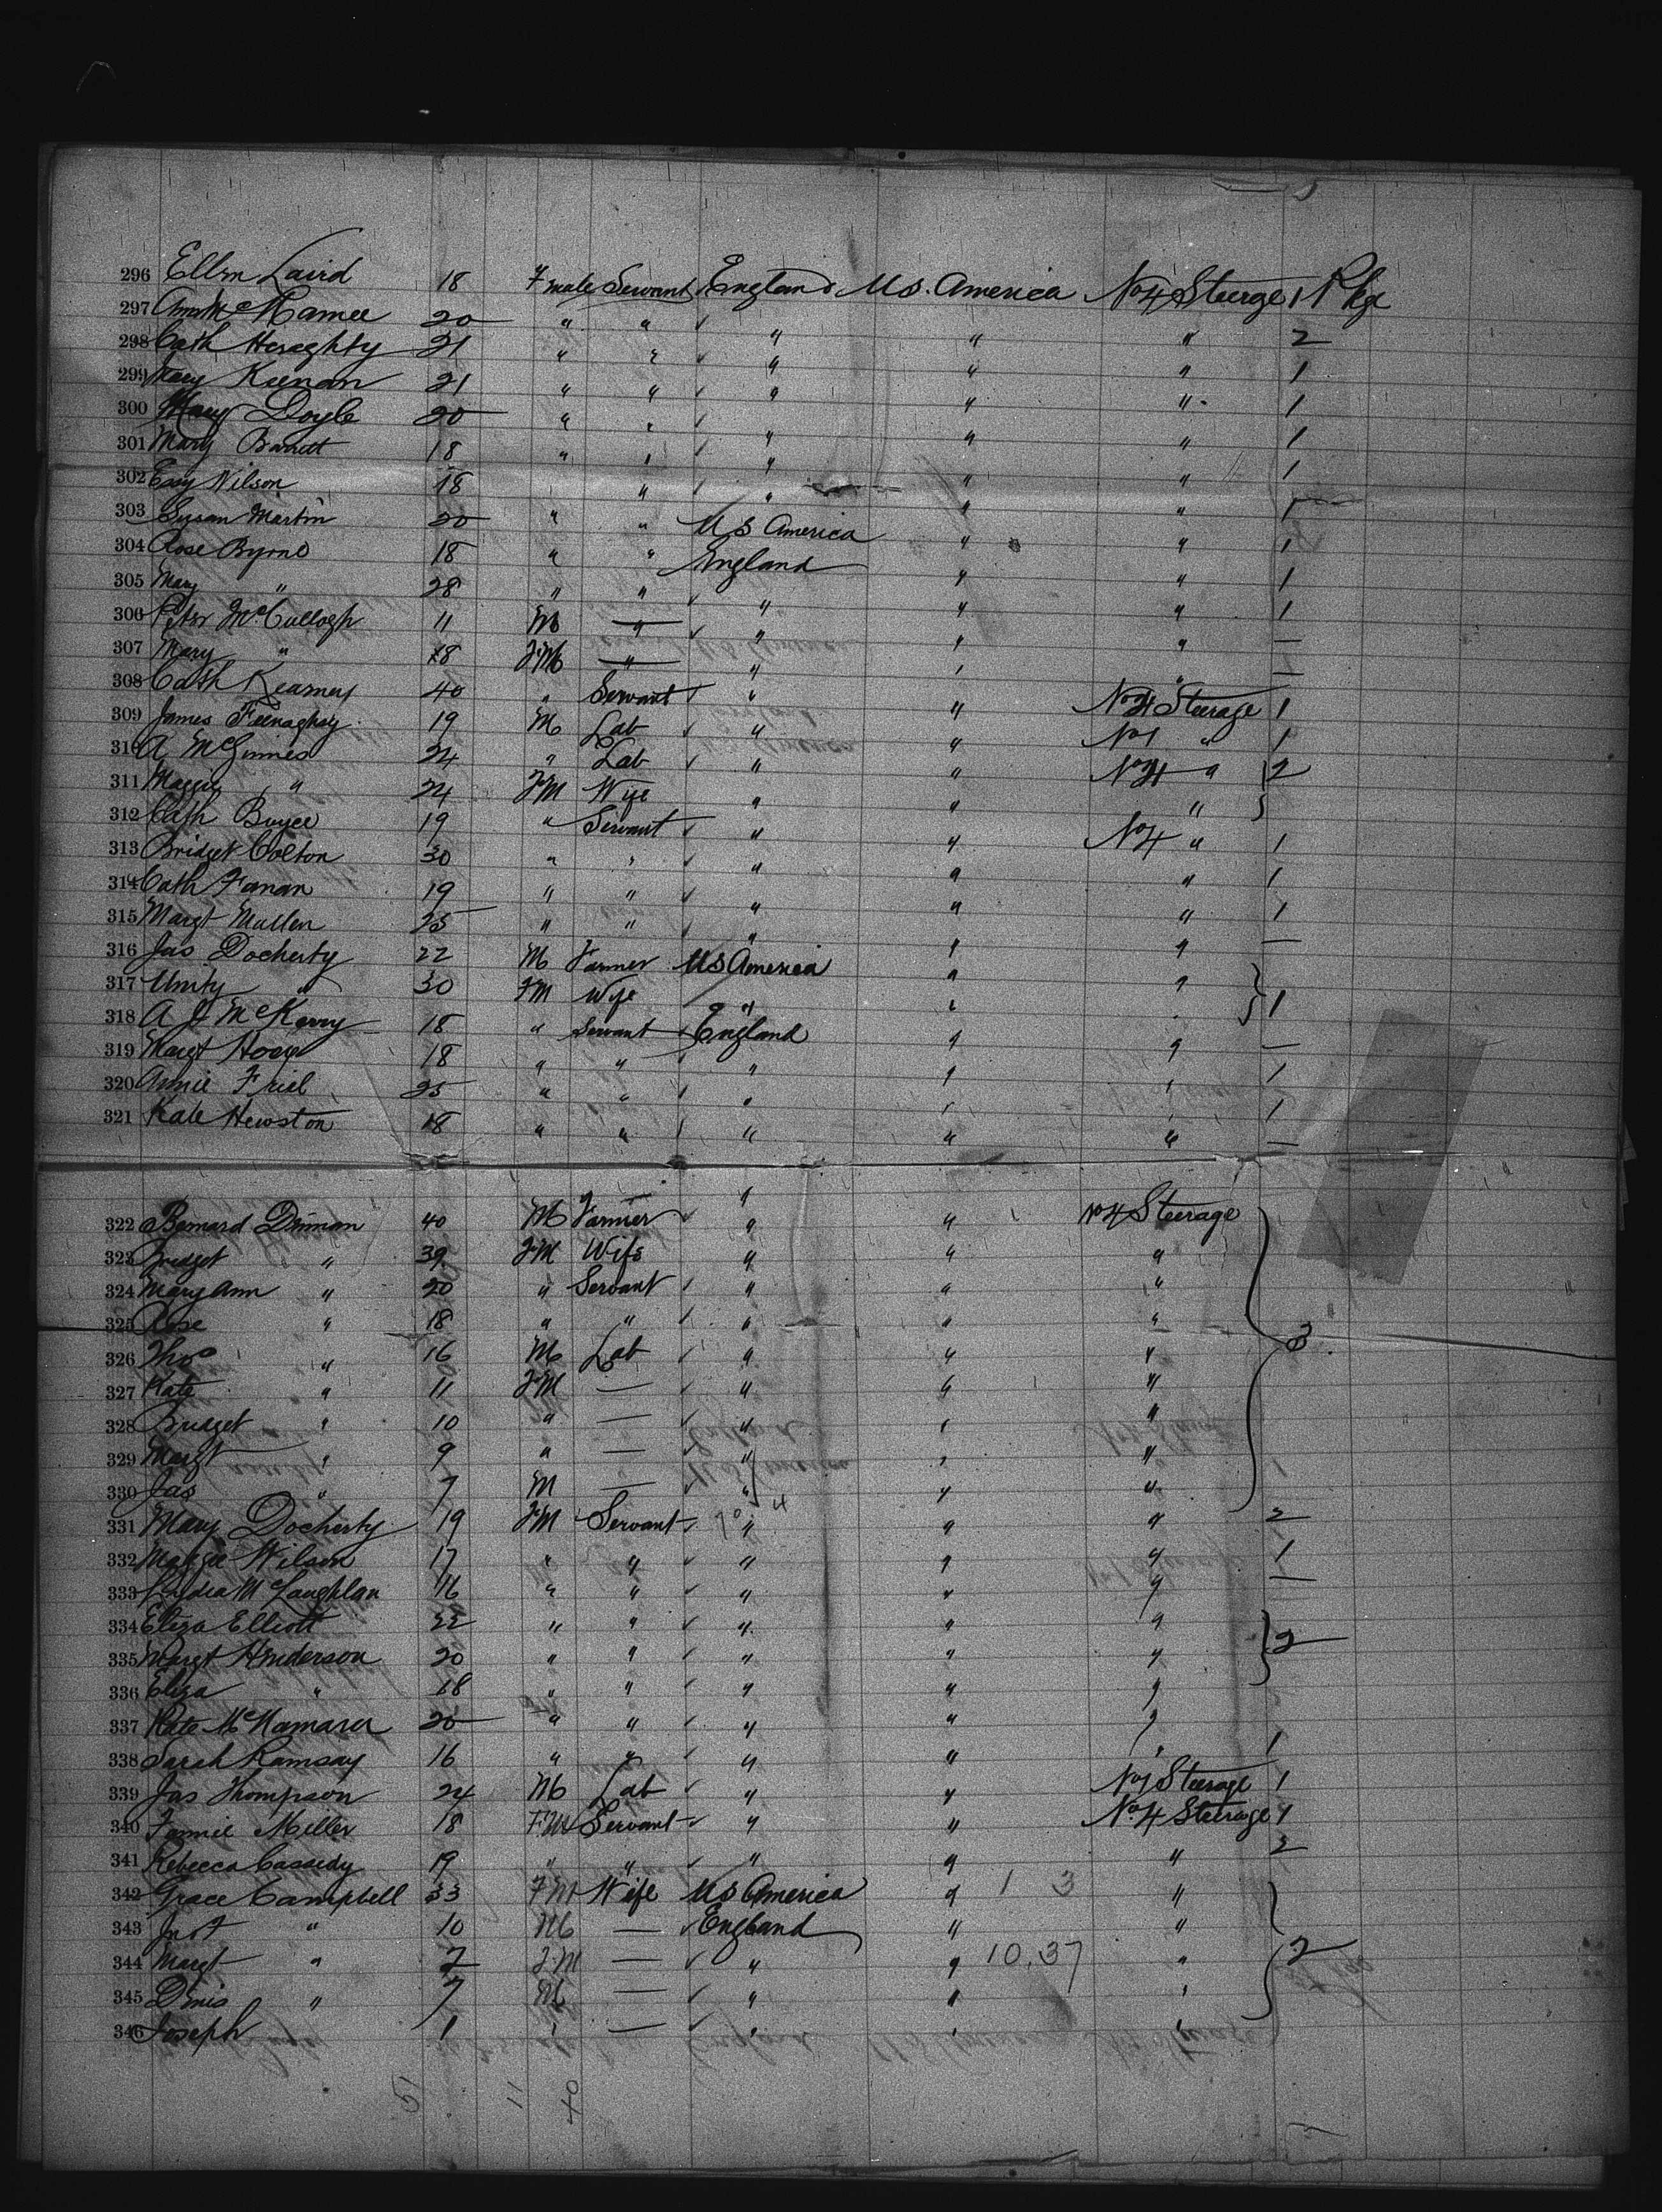 296 Ellen Laird 18 Fmale Servant England U.S. America No 4 Steerge 1 Pkge
297 McKamee 20 " " " " " 2
298 Cath Heraghty 21 " " " " " 1
299 Mary Keenan 21 " " " " " 1
300 Mary Doyle 20 " " " " " 1
301 Mary Barrett 18 " " " " " 1
302 Easy Nilson 18 " " " " 1
303 Susan Martin 20 " " U S America " " 1
304 Rose Byrne 18 " " England " " 1
305 Mary " 28 " " " " " 1
306 Peter McCullogh 11 M — " " " —
307 Mary " 18 FM — " " " —
308 Cath Kearney 40 " Servant " " No 4 Steerage 1
309 James Feenaghty 19 M Lab " " No 1 " 1
310 A McGinnes 24 " Lab " " No 4 " 2
311 Maggie " 24 FM Wife " " "
312 Cath Boyce 19 " Servant " " No 4 " 1
313 Bridget Colton 30 " " " " " 1
314 Cath Fanan 19 " " " " " 1
315 Margt Mullen 25 " " " " " —
316 Jas Docherty 22 M Farmer US America " "
317 Unity " 30 FM Wife " " 1
318 A J McKerry 18 " Servant England " " —
319 Margt 18 " " " " " 1
320 Annie Friel 25 " " " " " 1
321 Kate Hewston 18 " " " " " —
322 Bernard Drinnan 40 M Farmer " " No 4 Steerage
323 Bridget " 39 FM Wife " " "
324 Mary Ann " 20 " Servant " " "
325 Rose " 18 " " " " "
326 Thos " 16 M Lab " " " 3
327 Kate " 11 FM — " " "
328 Bridget " 10 " — " " "
329 Margt " 9 " — " " "
330 Jas " 7 M — " " "
331 Mary Docherty 19 FM Servant " " " 2
332 Maggie Wilson 17 " " " " " 1
333 Lydia McLaughlan 16 " " " " " —
334 Eliza Elliott 22 " " " " "
335 Margt Henderson 20 " " " " " 2
336 Eliza " 18 " " " " "
337 Kate McNamara 20 " " " " "
338 Sarah Ramsay 16 " " " " " 1
339 Jas Thompson 24 M Lab " " No 1 Steerage 1
340 Fannie Miller 18 FM Servant " " No. 4 Steerage 1
341 Rebecca Cassidy 19 " " " " " 2
342 Grace Campbell 33 FM Wife US America " 1 3 "
343 Jno " 10 M — England " "
344 Margt " 7 FM — " " 10.37 " 2
345 Denis " 7 M — " " "
346 Joseph 1 " — " " "
5 11 40